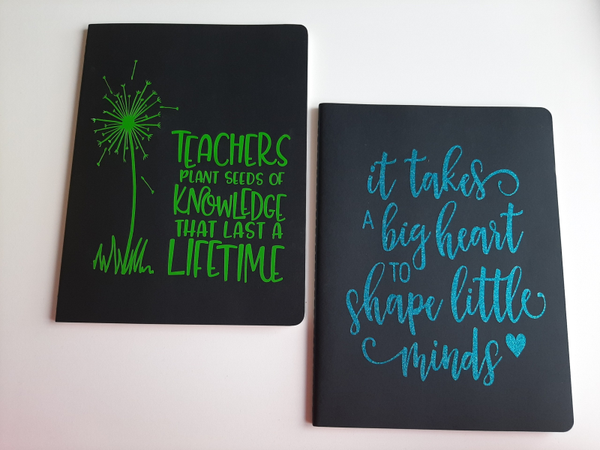 TEACHERS
PLANT SEEDS OF
KNOWLEDGE
THAT LAST A
LIFETIME
it takes
A big heart
TO
shape little
minds